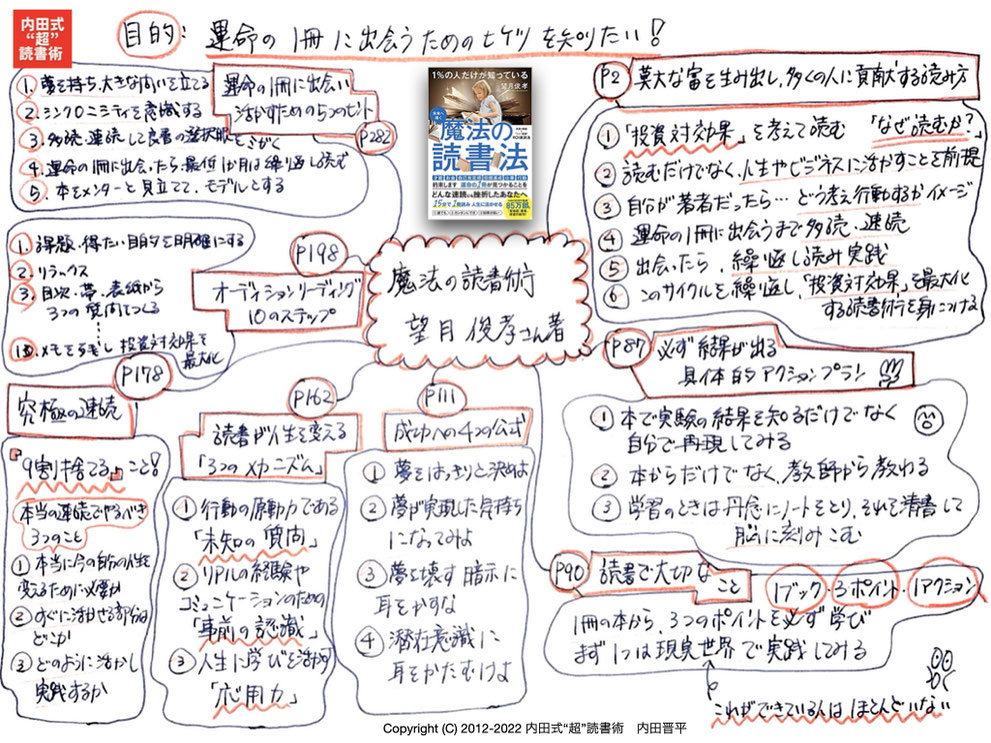 内田式
“超”
読書術
目的: 運命の1冊に出会うためのヒケツを知りたい!
1%の人だけが知っている
望月俊孝
魔法の
読書法
どんな速読にも挫折したあなたへ
15分で1冊読み 人生に活かせる
85万部
魔法の読書術
望月俊孝さん著
P2
莫大な富を生み出し、多くの人に貢献する読み方
① 「投資対効果」を考えて読む 「なぜ読むか?」
② 読むだけでなく、人生やビジネスに活かすことを前提
③ 自分が著者だったら… どう考え行動するかイメージ
④ 運命の1冊に出会うまで多読、速読
⑤ 出会ったら、繰り返し読み実践
⑥ このサイクルを繰り返し、「投資対効果」を最大化
する読書術を身につける
P87
必ず結果が出る
具体的アクションプラン
① 本で実験の結果を知るだけでなく
自分で再現してみる
② 本からだけでなく、教師から教わる
③ 学習のときは丹念にノートをとり、それを清書して
脳に刻みこむ
P90
読書で大切な
こと
1ブック・3ポイント・1アクション
1冊の本から、3つのポイントを必ず学び
まず1つは現実世界で実践してみる
これができている人はほとんどいない
P111
成功への4つの公式
① 夢をはっきりと決めよ
② 夢が実現した気持ち
になってみよ
③ 夢を壊す暗示に
耳をかすな
④ 潜在意識に
耳をかたむけよ
P162
読書が人生を変える
「3つのメカニズム」
① 行動の原動力である
「未知の質問」
② リアルの経験や
コミュニケーションのための
「事前の認識」
③ 人生に学びを活かす
「応用力」
P178
究極の速読
『9割捨てる』こと!
本当の速読でやるべき
3つのこと
① 本当に今の自分の人生を
変えるために必要か
② すぐに活かせる部分は
どこか
③ どのように活かし
実践するか
P198
オーディションリーディング
10のステップ
1. 課題、得たい目的を明確にする
2. リラックス
3. 目次、帯、表紙から
3つの質問をつくる
10. メモを見返し 投資対効果を
最大化
P282
運命の1冊に出会い
活かすための5つのヒント
1. 夢を持ち、大きな問いを立てる
2. シンクロニシティを意識する
3. 多読、速読して良書の選択眼をみがく
4. 運命の1冊に出会ったら、最低1か月は繰り返し読む
5. 本をメンターと見立てて、モデルとする
Copyright (C) 2012-2022 内田式“超”読書術 内田晋平